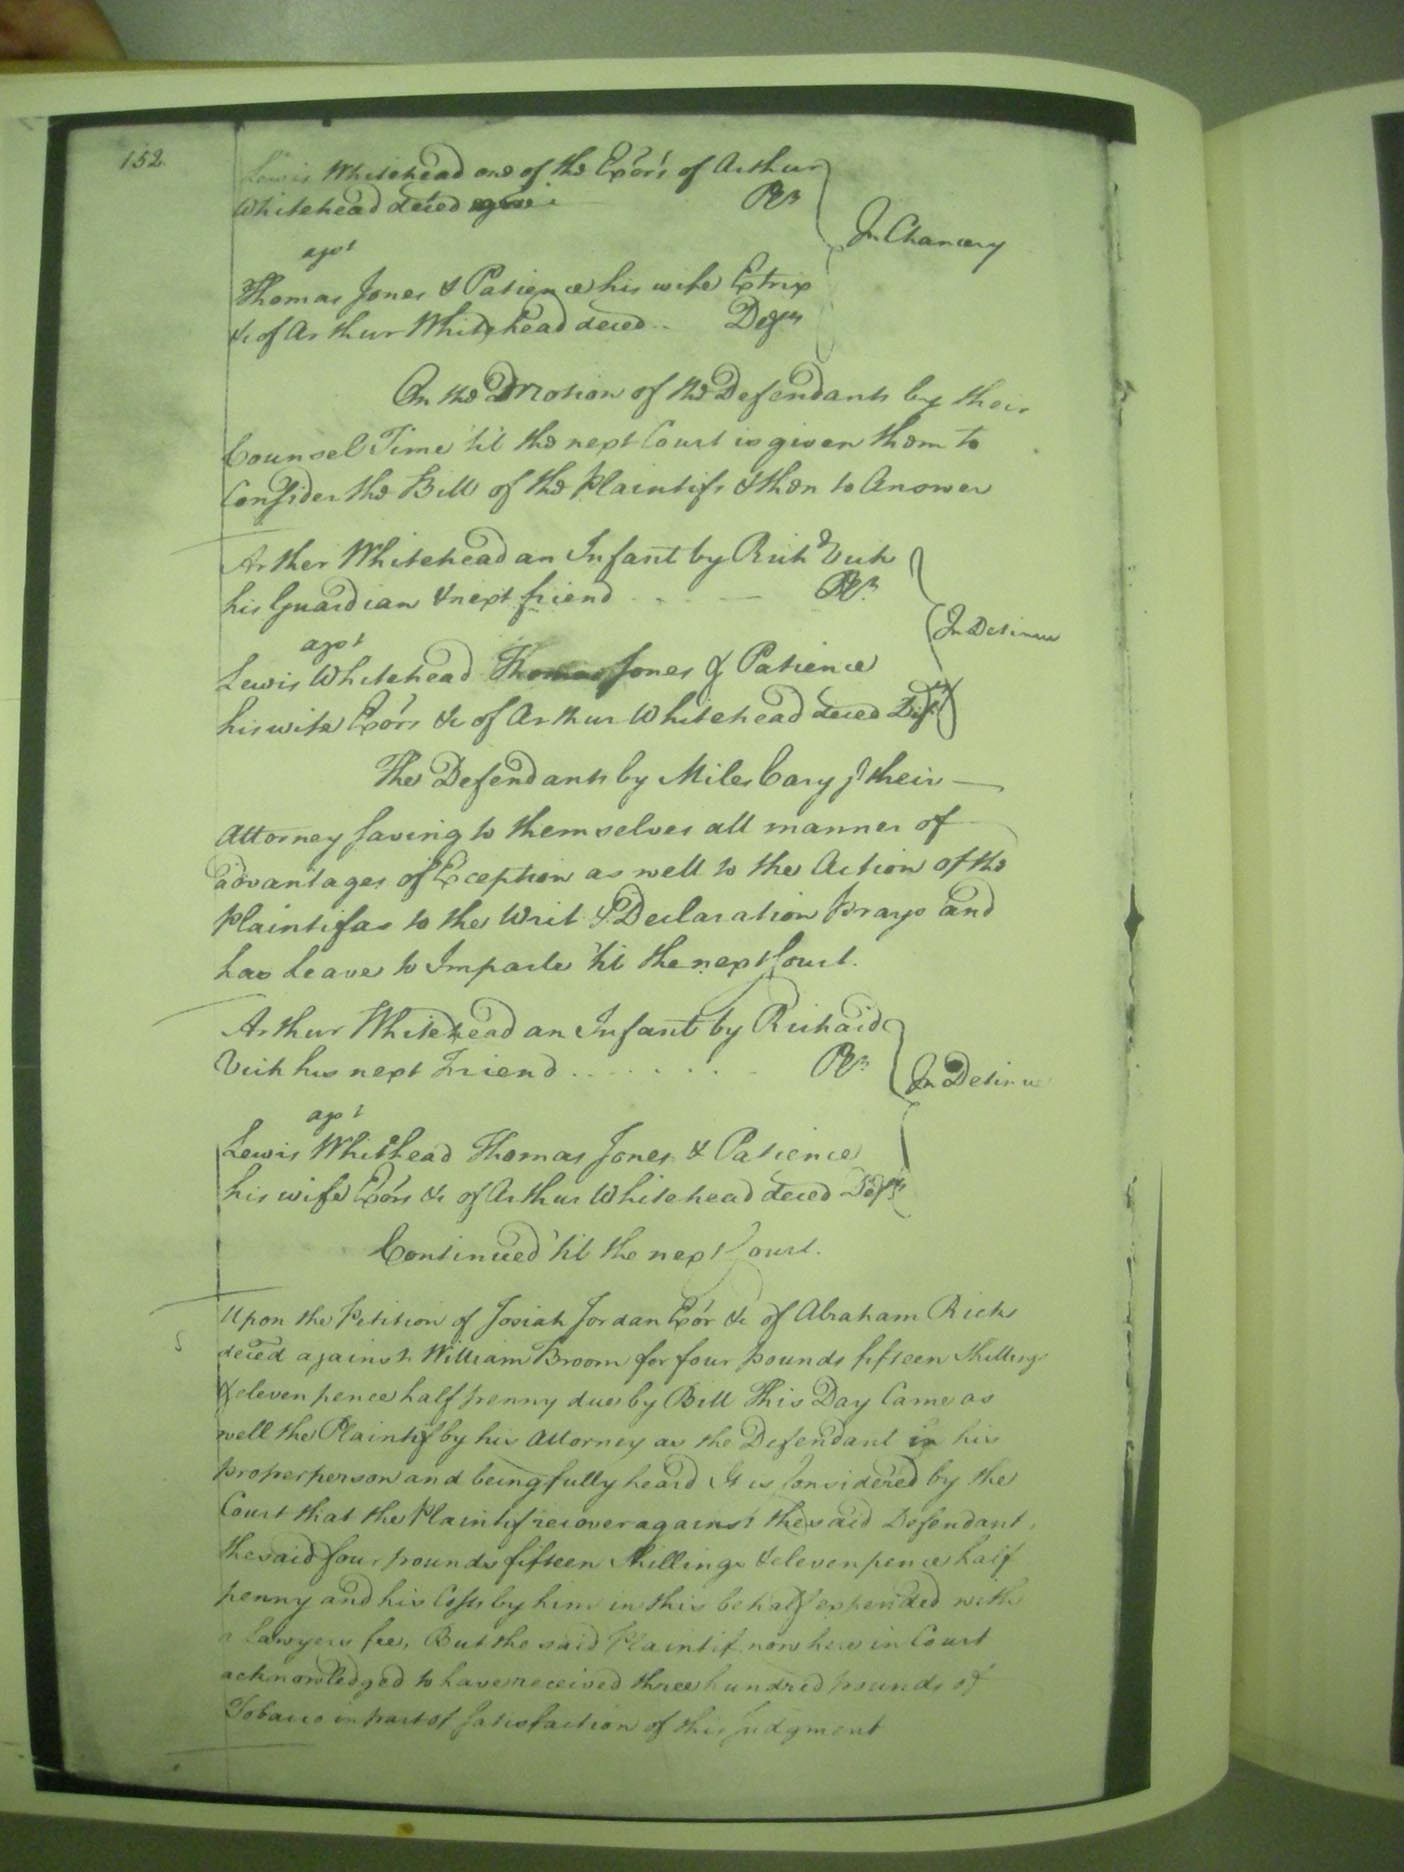 152
Lewis Whitehead one of the Exors of Arthur
Whitehead deced Plt
agst
In Chancery
Thomas Jones & Patience his wife Extrix
&c of Arthur Whitehead deced .. Defts
On the Motion of the Defendants by their
Counsel Time 'til the next Court is given them to
Consider the Bill of the Plaintifs & then to Answer
Arther Whitehead an Infant by Richd Vick
his Guardian & next friend . . . . Plt
agst
In Detinue
Lewis Whitehead Thomas Jones & Patience
his wife Exors &c of Arthur Whitehead deced Defts
The Defendants by Miles Cary J their
Attorney saving to themselves all manner of
advantages of Exception as well to the Action of the
Plaintif as to the Writ & Declaration prays and
has leave to Imparle 'til the next Court.
Arthur Whitehead an Infant by Richard
Vick his next Friend . . . . . . . Plt
In Detinue
agst
Lewis Whithead Thomas Jones & Patience
his wife Exors &c of Arthur Whitehead deced Defts
Continued 'til the next Court.
Upon the Petition of Josiah Jordan Exor &c of Abraham Ricks
deced against William Broom for four pounds fifteen Shillings
& eleven pence half penny due by Bill This Day Came as
well the Plaintif by his Attorney as the Defendant in his
proper person and being fully heard It is Considered by the
Court that the Plaintif recover against the said Defendant
the said four pounds fifteen Shillings & eleven pence half
penny and his Costs by him in this behalf expended with
a Lawyers fee, But the said Plaintif now here in Court
acknowledged to have received three hundred pounds of
Tobacco in part of Satisfaction of this Judgment